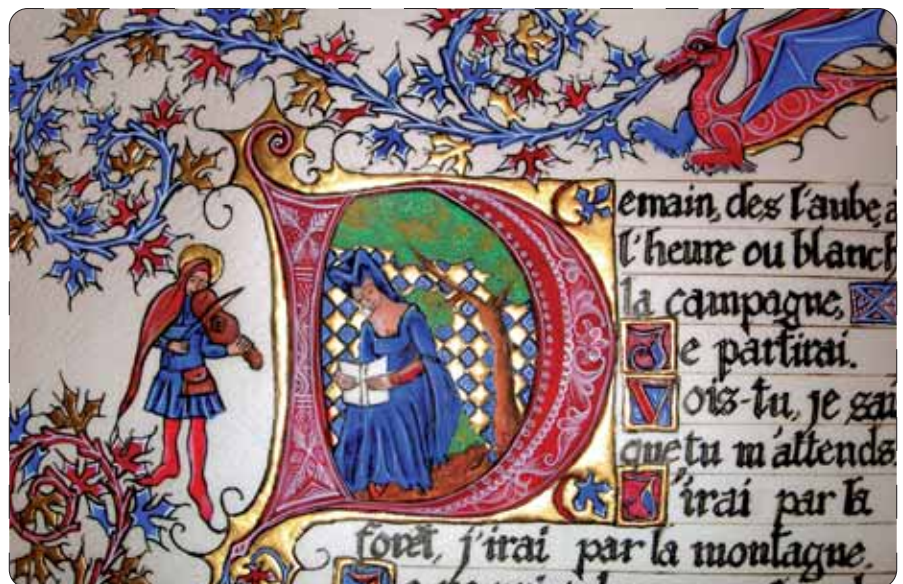 Demain, des l'aube, à
l'heure ou blanch
la campagne,
Je partirai.
Vois-tu, je sai
que tu m'attends.
J'irai par la
forêt, j'irai par la montagne.